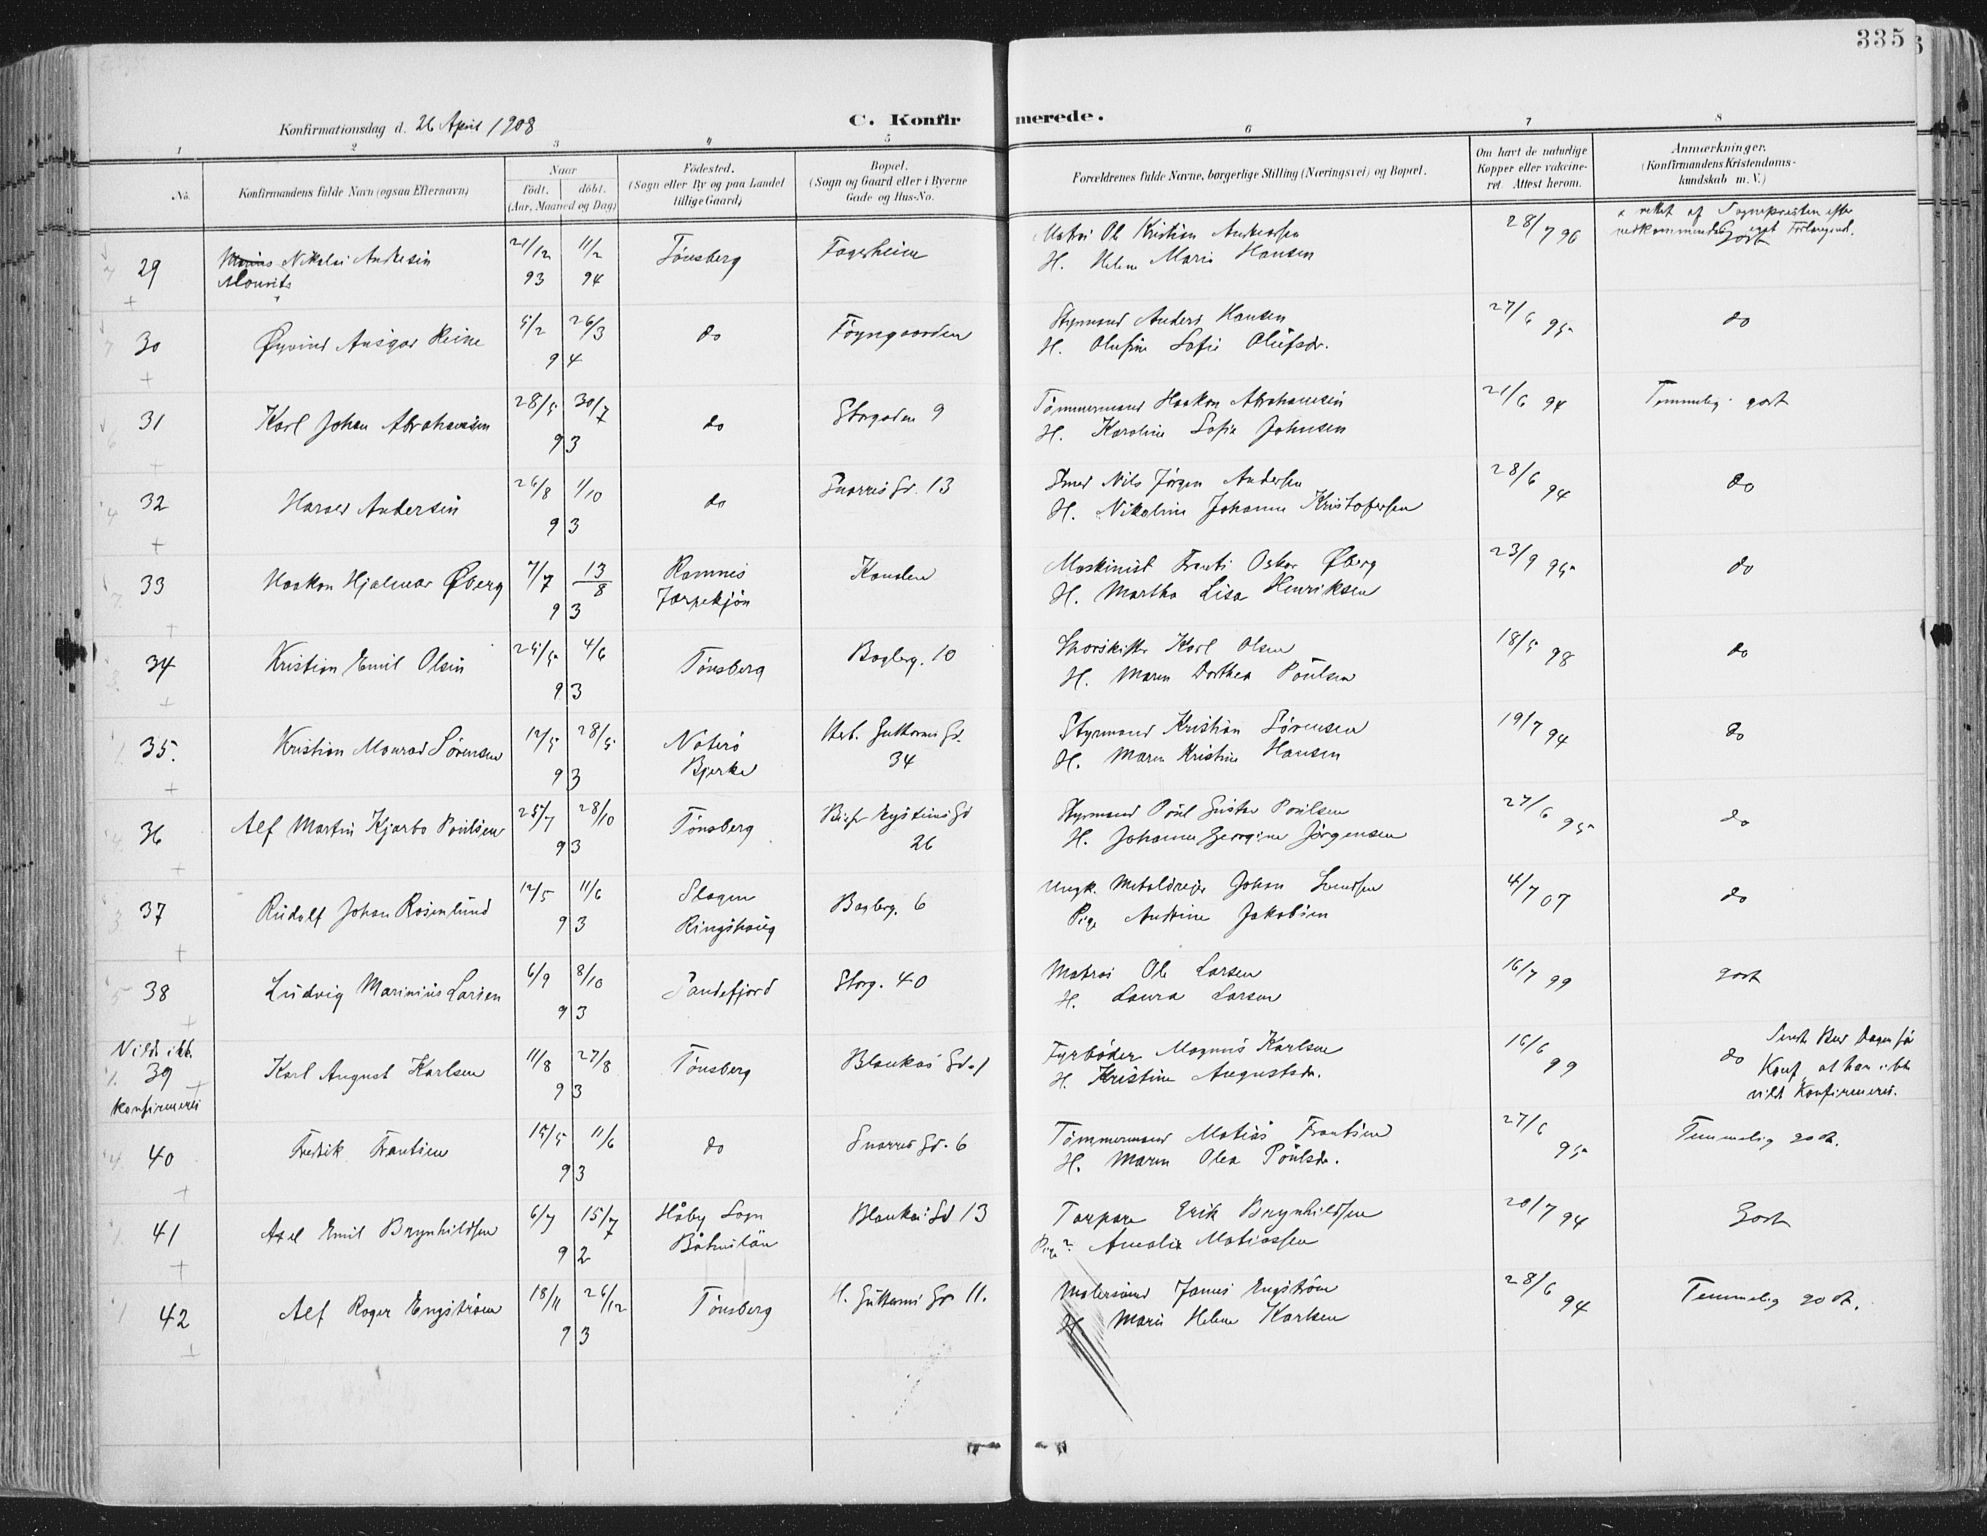 335
Konfirmationsdag d. 26 April 1908
C. Konfirmerede.
1 2 3 4 5 6 7 8
No.
Konfirmandens fulde Navn (ogsaa Efternavn)
Naar
født. døbt.
(Aar, Maaned og Dag)
Fødested.
(Sogn eller By og paa Landet
tillige Gaard)
Bopæl.
(Sogn og Gaard eller i Byerne
Gade og Hus-No.
Forældrenes fulde Navne, borgerlige Stilling (Næringsvei) og Bopæl.
Om havt de naturlige
Kopper eller vakcine-
ret Attest herom.
Anmærkninger.
(Konfirmandens Kristendoms-
kundskab m. V.)
29 Marius Nikolai Andersen 21/12 11/2 Tønsberg Fagerheim Matros Ole Kristian Andersen 28/7 96 rettet af Sognepresten efter
Mourits 93 94 H. Helene Marie Hansen vedkommendes eget Forlangend. Godt
30 Øyvind Ansgar Heine 5/2 26/3 do Føyngaarden Styrmand Anders Hansen 27/6 95 do
94 H. Olufine Sofie Olufsdr.
31 Karl Johan Abrahamsen 28/5 30/7 do Storgaden 9 Tømmermand Haakon Abrahamsen 21/6 94 Temmelig godt
93 H. Karoline Sofie Johnsen
32 Harald Andersen 26/8 1/10 do Snorres Gd. 13 Smed Nils Jørgen Andersen 28/6 94 do
93 H. Nikoline Johanne Kristofersen
33 Haakon Hjalmar Øberg 7/7 13/8 Ramnes Kanalen Maskinist Frants Oskar Øberg 23/9 95 do
93 Jarpekjøn H. Martha Lisa Henriksen
34 Kristian Emil Olsen 25/5 4/6 Tønsberg Baglerg. 10 Karl Olsen 18/5 98 do
93 H. Maren Dorthea Poulsen
35. Kristian Monrad Sørensen 12/5 28/5 Nøterø Guttorms Gd. Styrmand Kristian Sørensen 19/7 94 do
93 Bjerke 34 H. Maren Kristine Hansen
36 Alf Martin Kjærbo Poulsen 25/7 28/10 Tønsberg Eystens Gd Styrmand Poul Gustav Poulsen 27/6 95 do
93 26 H. Johanne Georgine Jørgensen
37 Rudolf Johan Rosenlund 12/5 11/6 Slagen Baglerg. 6 Ungk. Metaldreier Johan Svendsen 4/7 07 do
93 Ringshoug Pige Antoine Jakobsen
38 Ludvig Marinius Larsen 6/9 8/10 Sandefjord Storg. 40 Matros Ole Larsen 16/7 99 godt
93 H. Laura Larsen
Vilde ikke
39 Karl August Karlsen 11/8 27/8 Tønsberg Blankas Gd. 1 Fyrbøder Magnus Karlsen 16/6 99 do Sendt Bud Dagen før
konfirmeres 93 H. Kristine Augustsdr. Konf. at han ikke
vilde Konfirmeres.
40 Fredrik Frantsen 15/5 11/6 do Snorres Gd. 6 Tømmermand Matias Frantsen 27/6 95 Temmelig godt.
93 H. Maren Olea Poulsdr.
41 Axel Emil Brynhildsen 6/7 15/7 Håby Sogn Blankas Gd 13 Torpare Erik Brynhildsen 20/7 94 Godt
92 Båhuslän Pige? Amalie Matiassen
42 Alf Roger Engstrøm 18/11 26/12 Tønsberg H. Guttorms Gd. 11. Malersvend James Engstrøm 28/6 94 Temmelig godt.
93 H Marie Helene Karlsen